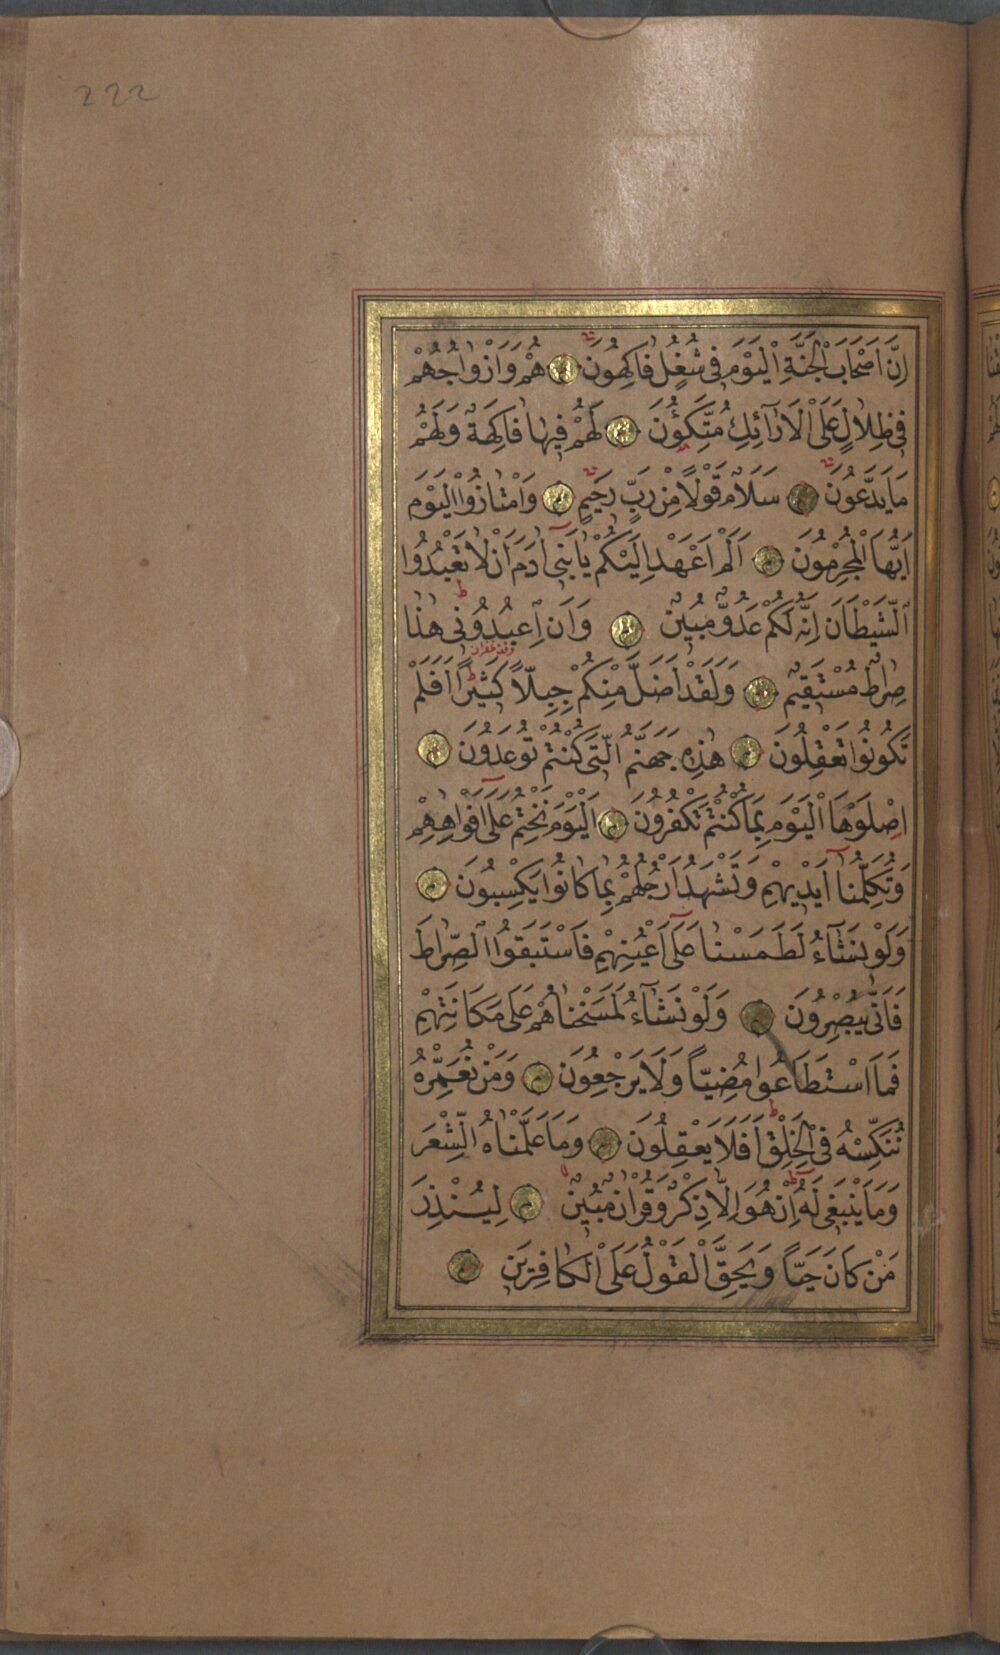 222
اِنَّ اَصْحَابَ الْجَنَّةِ الْيَوْمَ فٖى شُغُلٍ فَاكِهُونَ هُمْ وَاَزْوَاجُهُمْ
فٖى ظِلَالٍ عَلَى الْاَرَٓائِكِ مُتَّكِؤُنَ لَهُمْ فٖيهَا فَاكِهَةٌ وَلَهُمْ
مَا يَدَّعُونَ سَلَامٌ قَوْلًا مِنْ رَبٍّ رَحٖيمٍ وَامْتَازُوا الْيَوْمَ
اَيُّهَا الْمُجْرِمُونَ اَلَمْ اَعْهَدْ اِلَيْكُمْ يَا بَنٖٓى اٰدَمَ اَنْ لَا تَعْبُدُوا
الشَّيْطَانَ اِنَّهُ لَكُمْ عَدُوٌّ مُبٖينٌ وَاَنِ اعْبُدُونٖى هٰذَا
وقف غفران
صِرَاطٌ مُسْتَقٖيمٌ وَلَقَدْ اَضَلَّ مِنْكُمْ جِبِلًّا كَثٖيرًا اَفَلَمْ
تَكُونُوا تَعْقِلُونَ هٰذِهٖ جَهَنَّمُ الَّتٖى كُنْتُمْ تُوعَدُونَ
اِصْلَوْهَا الْيَوْمَ بِمَا كُنْتُمْ تَكْفُرُونَ اَلْيَوْمَ نَخْتِمُ عَلٰٓى اَفْوَاهِهِمْ
وَتُكَلِّمُنَٓا اَيْدٖيهِمْ وَتَشْهَدُ اَرْجُلُهُمْ بِمَا كَانُوا يَكْسِبُونَ
وَلَوْ نَشَٓاءُ لَطَمَسْنَا عَلٰٓى اَعْيُنِهِمْ فَاسْتَبَقُوا الصِّرَاطَ
فَاَنّٰى يُبْصِرُونَ وَلَوْ نَشَٓاءُ لَمَسَخْنَاهُمْ عَلٰى مَكَانَتِهِمْ
فَمَا اسْتَطَاعُوا مُضِيًّا وَلَا يَرْجِعُونَ وَمَنْ نُعَمِّرْهُ
نُنَكِّسْهُ فِى الْخَلْقِ اَفَلَا يَعْقِلُونَ وَمَا عَلَّمْنَاهُ الشِّعْرَ
وَمَا يَنْبَغٖى لَهُ اِنْ هُوَ اِلَّا ذِكْرٌ وَقُرْاٰنٌ مُبٖينٌ لِيُنْذِرَ
مَنْ كَانَ حَيًّا وَيَحِقَّ الْقَوْلُ عَلَى الْكَافِرٖينَ